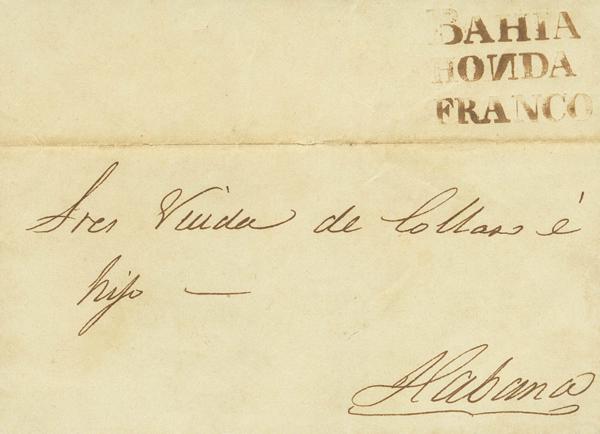 BAHIA
HONDA
FRANCO
Sres Viuda de Collazo é
hijo —
Habana